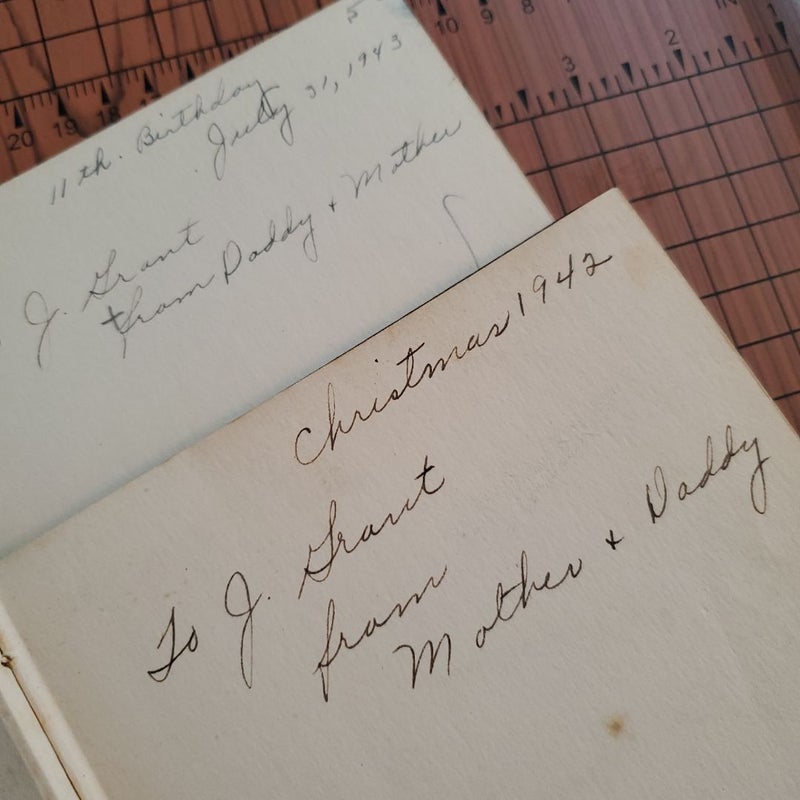 5
11th. Birthday
July 31, 1943
J. Grant
from Daddy + Mother
Christmas 1942
To J. Grant
from
Mother + Daddy
20 19 18
10 9 8
3 2 1